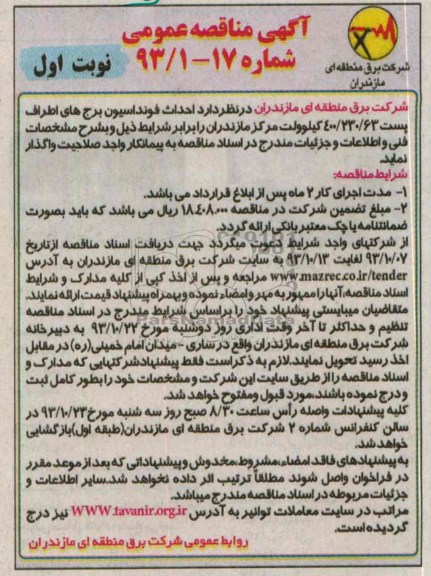 آگهی مناقصه عمومی
شماره ۱۷-۹۳/۱
نوبت اول
شرکت برق منطقه ای
مازندران
شرکت برق منطقه ای مازندران درنظردارد احداث فونداسیون برج های اطراف
پست ۴۰۰/۲۳۰/۶۳ کیلوولت مرکز مازندران را برابر شرایط ذیل وبشرح مشخصات
فنی واطلاعات و جزئیات مندرج در اسناد مناقصه به پیمانکار واجد صلاحیت واگذار
نماید.
شرایط مناقصه:
۱- مدت اجرای کار ۲ ماه پس از ابلاغ قرارداد می باشد.
۲- مبلغ تضمین شرکت در مناقصه ۱۸.۴۰۸.۰۰۰ ریال می باشد که باید بصورت
ضمانتنامه یا چک معتبر بانکی ارائه گردد.
از شرکتهای واجد شرایط دعوت میگردد جهت دریافت اسناد مناقصه ازتاریخ
۹۳/۱۰/۰۷ لغایت ۹۳/۱۰/۱۳ به سایت شرکت برق منطقه ای مازندران به آدرس
www.mazrec.co.ir/tender مراجعه و پس از اخذ کپی از کلیه مدارک و شرایط
اسناد مناقصه،آنها را ممهور به مهر و امضاء نموده وبهمراه پیشنهاد قیمت ارائه نمایند.
متقاضیان میبایستی پیشنهاد خود را براساس شرایط مندرج در اسناد مناقصه
تنظیم و حداکثر تا آخر وقت اداری روز دوشنبه مورخ ۹۳/۱۰/۲۲ به دبیرخانه
شرکت برق منطقه ای مازندران واقع در ساری - میدان امام خمینی(ره) در مقابل
اخذ رسید تحویل نمایند.لازم به ذکراست فقط پیشنهادشرکتهایی که مدارک و
اسناد مناقصه را از طریق سایت این شرکت و مشخصات خود را بطور کامل ثبت
و درج نموده باشند،مورد قبول ومفتوح خواهد شد.
کلیه پیشنهادات واصله رأس ساعت ۸/۳۰ صبح روز سه شنبه مورخ ۹۳/۱۰/۲۳ در
سالن کنفرانس شماره ۲ شرکت برق منطقه ای مازندران(طبقه اول)بازگشایی
خواهدشد.
به پیشنهادهای فاقد امضاء،مشروط،مخدوش و پیشنهاداتی که بعد از موعد مقرر
در فراخوان واصل شوند مطلقاً ترتیب اثر داده نخواهد شد.سایر اطلاعات و
جزئیات مربوطه در اسناد مناقصه مندرج میباشد.
مراتب در سایت معاملات توانیر به آدرس WWW.tavanir.org.ir نیز درج
گردیده است.
روابط عمومی شرکت برق منطقه ای مازندران